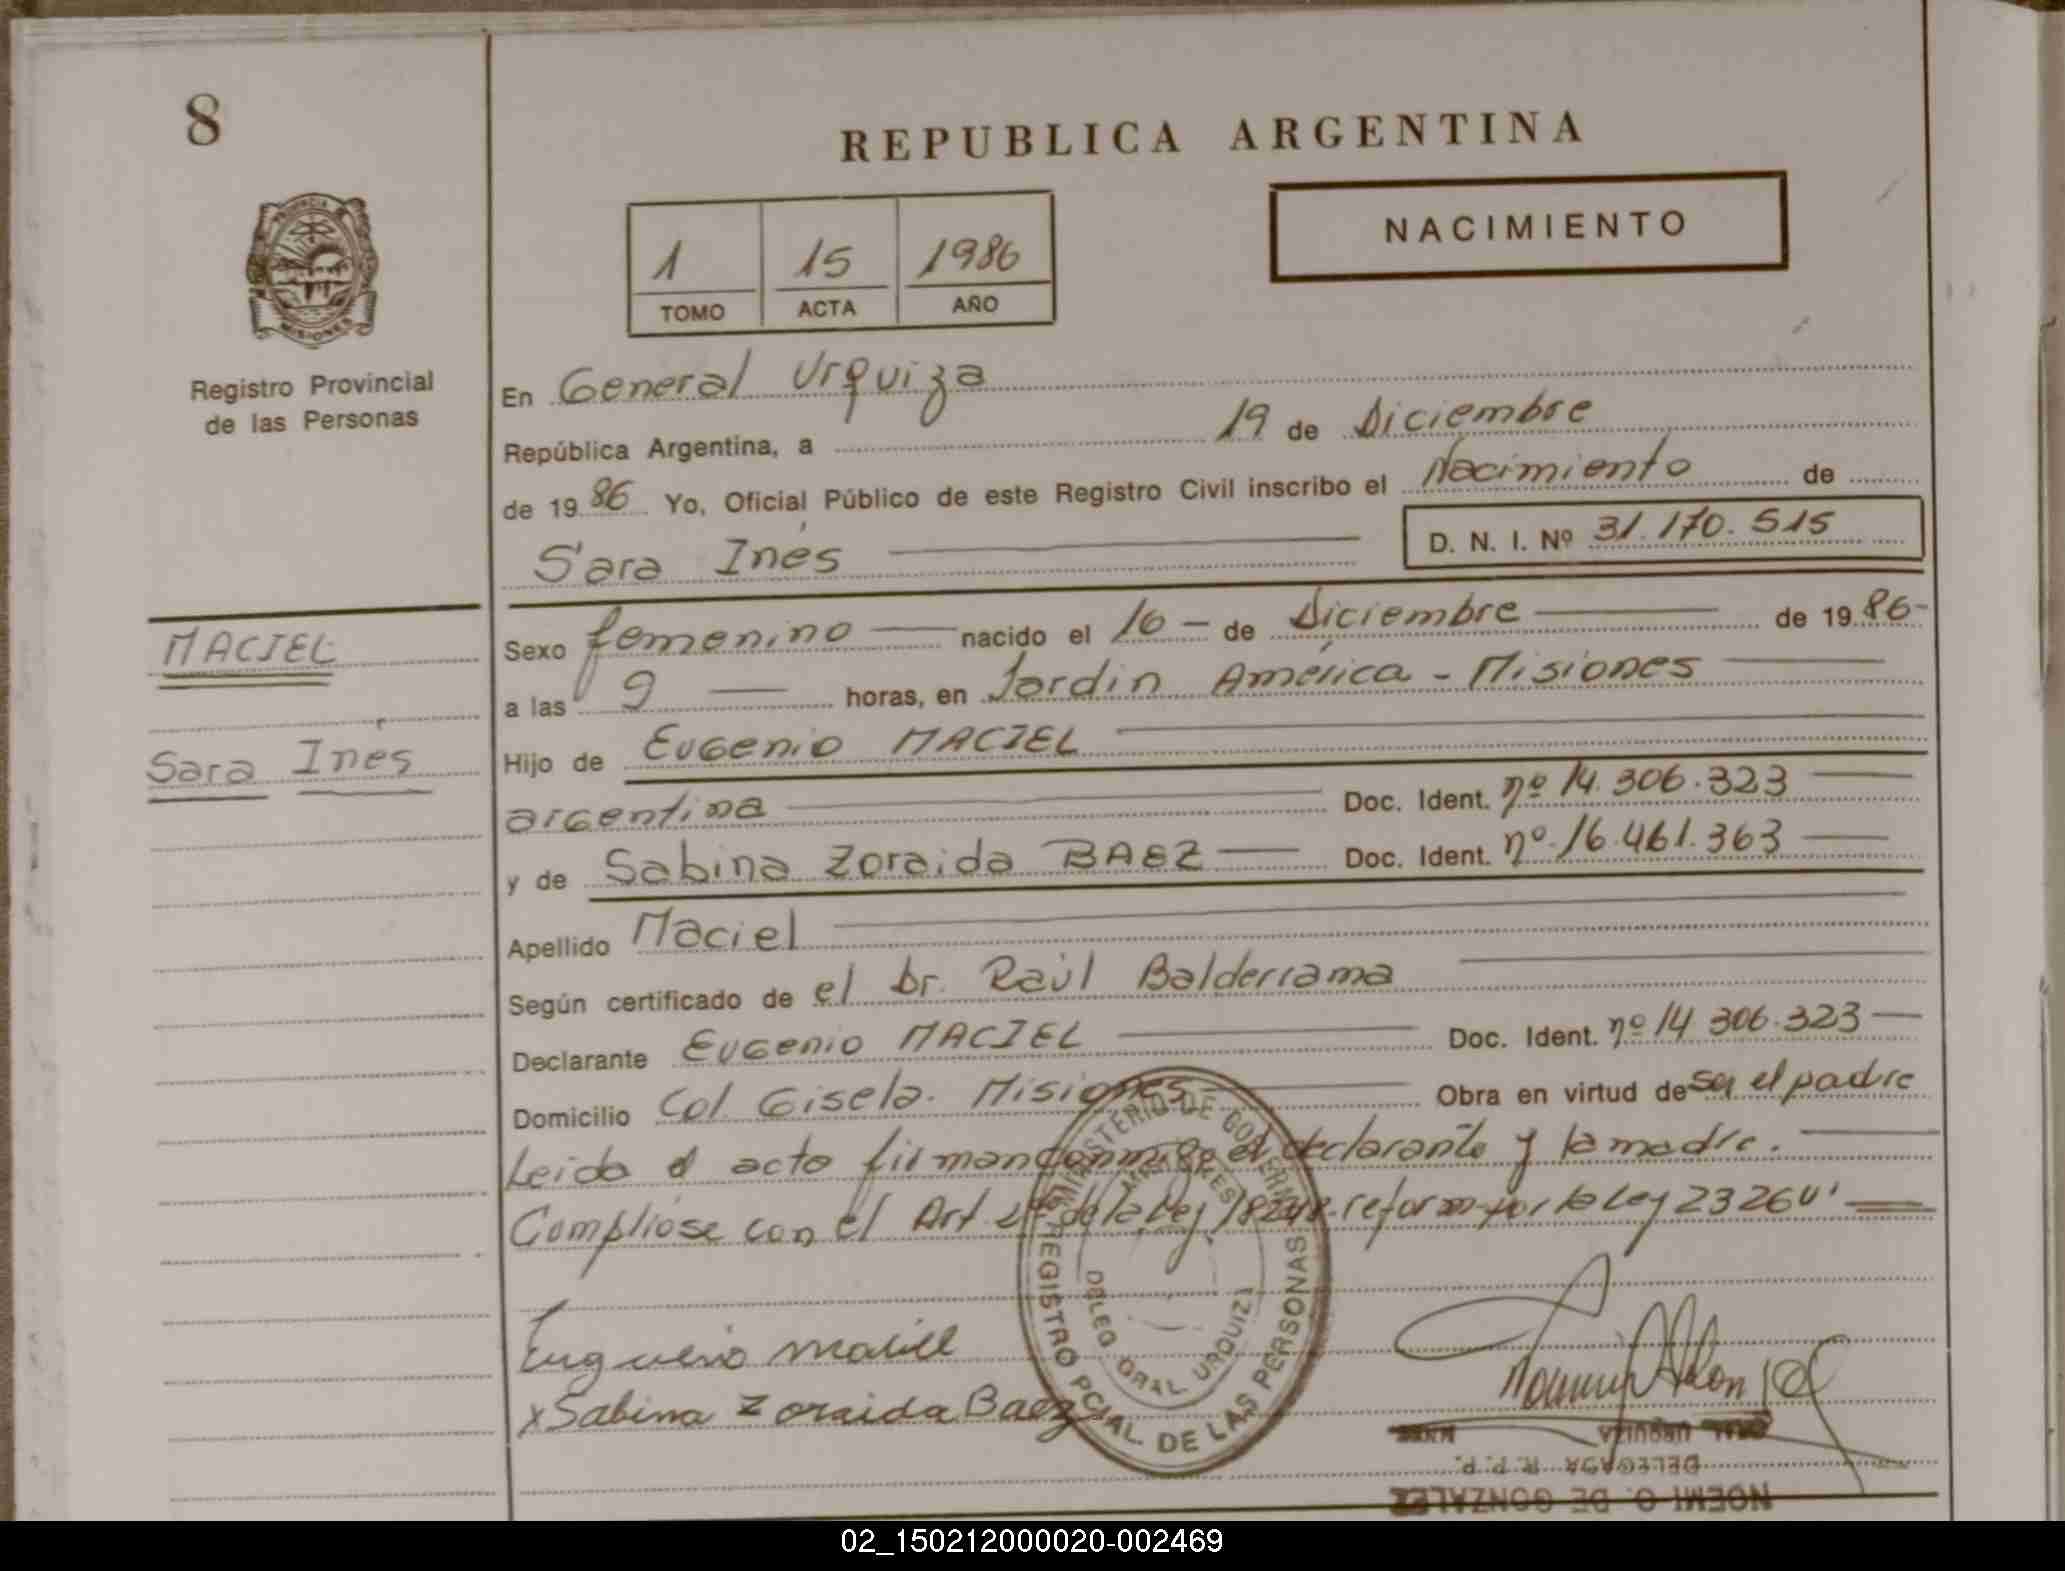 8
REPUBLICA ARGENTINA
NACIMIENTO
1 15 1986
TOMO ACTA AÑO
PROVINCIA
MISIONES
Registro Provincial
de las Personas
En General Urquiza
República Argentina, a 19 de Diciembre
de 1986 Yo, Oficial Público de este Registro Civil inscribo el Nacimiento de
Sara Inés D. N. I. Nº 31.170.515
MACIEL
Sara Inés
Sexo femenino nacido el 16 - de Diciembre de 1986-
a las 9 horas, en Jardin América - Misiones
Hijo de Eugenio MACIEL
argentina Doc. Ident. nº 14.306.323
y de Sabina Zoraida BAEZ Doc. Ident. nº 16.461.363
Apellido Maciel
Según certificado de el Dr. Raúl Balderrama
Declarante Eugenio MACIEL Doc. Ident. nº 14 306.323
Domicilio Col. Gisela. Misiones Obra en virtud de ser el padre
Leida el acta firman conmigo el declarante y la madre.
Compliose con el Art. de la Ley 18248 reform por la Ley 23264
MINISTERIO DE GOBIERNO
REGISTRO PCIAL. DE LAS PERSONAS
DELEG GRAL URQUIZA
MISIONES
Eugenio maciel
x Sabina Zoraida Baez
GRAL URQUIZA MNES
DELEGADA R. P. P.
NOEMI O. DE GONZALEZ
02_150212000020-002469